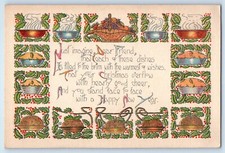 Just imagine, Dear Friend,
You each of these dishes
Is filled to the brim with the warmest of wishes,
That your Christmas overflow
with hearty good cheer,
And you stand face to face
with a Happy New Year.